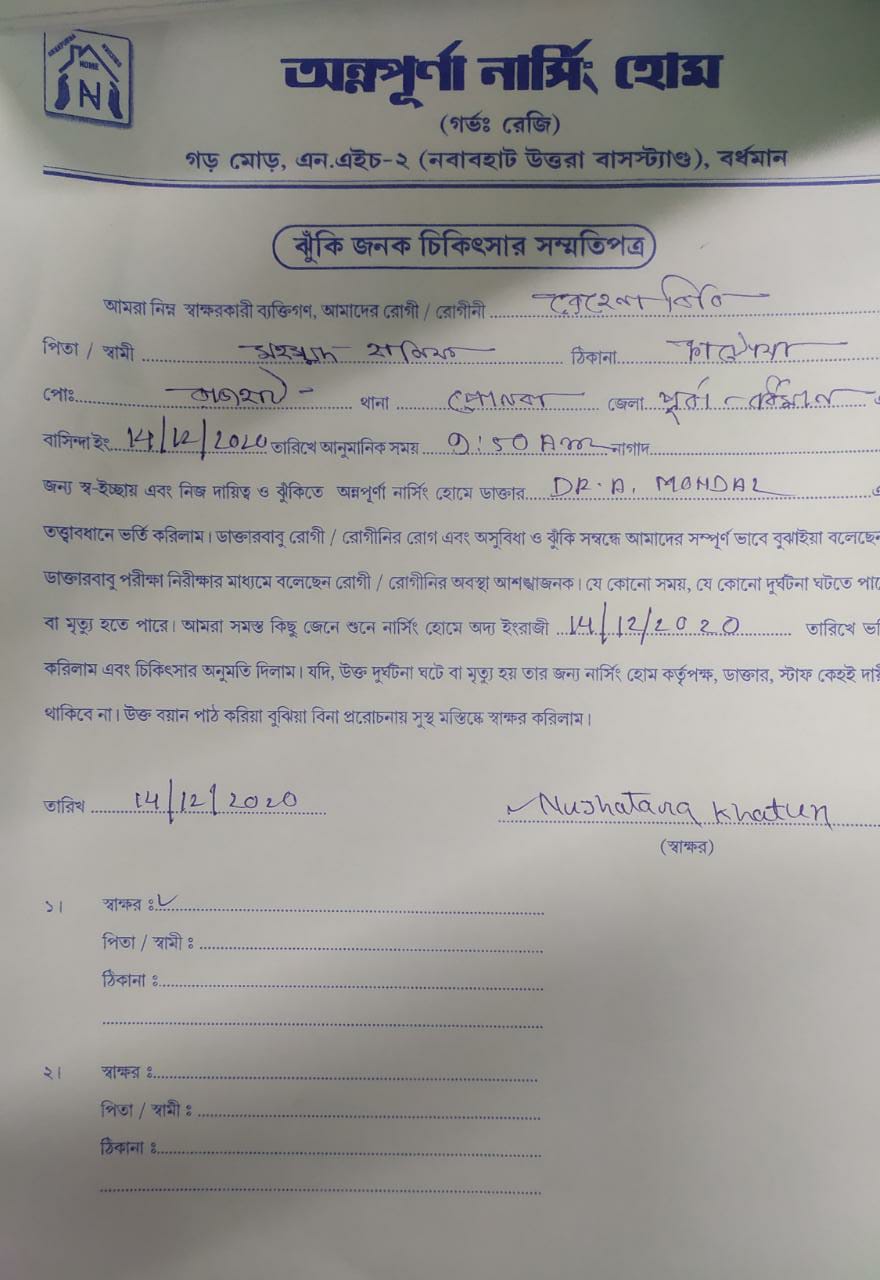 HOME
N
অন্নপূর্ণা নার্সিং হোম
(গর্ভঃ রেজি)
গড় মোড়, এন.এইচ-২ (নবাবহাট উত্তরা বাসস্ট্যাণ্ড), বর্ধমান
ঝুঁকি জনক চিকিৎসার সম্মতিপত্র
আমরা নিন্ন স্বাক্ষরকারী ব্যক্তিগণ, আমাদের রোগী / রোগীনী রেহেনা বিবি
পিতা / স্বামী ঠিকানা
পোঃ থানা জেলা পূর্ব বর্ধমান
বাসিন্দা ইং 14/12/2020 তারিখে আনুমানিক সময় 9:50 AM নাগাদ
জন্য স্ব-ইচ্ছায় এবং নিজ দায়িত্ব ও ঝুঁকিতে অন্নপূর্ণা নার্সিং হোমে ডাক্তার DR. A. MONDAL
তত্ত্বাবধানে ভর্তি করিলাম। ডাক্তারবাবু রোগী / রোগীনির রোগ এবং অসুবিধা ও ঝুঁকি সম্বন্ধে আমাদের সম্পূর্ণ ভাবে বুঝাইয়া বলেছেন
ডাক্তারবাবু পরীক্ষা নিরীক্ষার মাধ্যমে বলেছেন রোগী / রোগীনির অবস্থা আশঙ্খাজনক। যে কোনো সময়, যে কোনো দুর্ঘটনা ঘটতে পা
বা মৃত্যু হতে পারে। আমরা সমস্ত কিছু জেনে শুনে নার্সিং হোমে অদ্য ইংরাজী 14/12/2020 তারিখে ভ
করিলাম এবং চিকিৎসার অনুমতি দিলাম। যদি, উক্ত দুর্ঘটনা ঘটে বা মৃত্যু হয় তার জন্য নার্সিং হোম কর্তৃপক্ষ, ডাক্তার, স্টাফ কেহই দা
থাকিবে না। উক্ত বয়ান পাঠ করিয়া বুঝিয়া বিনা প্ররোচনায় সুস্থ মস্তিষ্কে স্বাক্ষর করিলাম।
তারিখ 14/12/2020 Nushatara Khatun
(স্বাক্ষর)
১। স্বাক্ষর ঃ
পিতা / স্বামী ঃ
ঠিকানা ঃ
২। স্বাক্ষর ঃ
পিতা / স্বামী ঃ
ঠিকানা ঃ